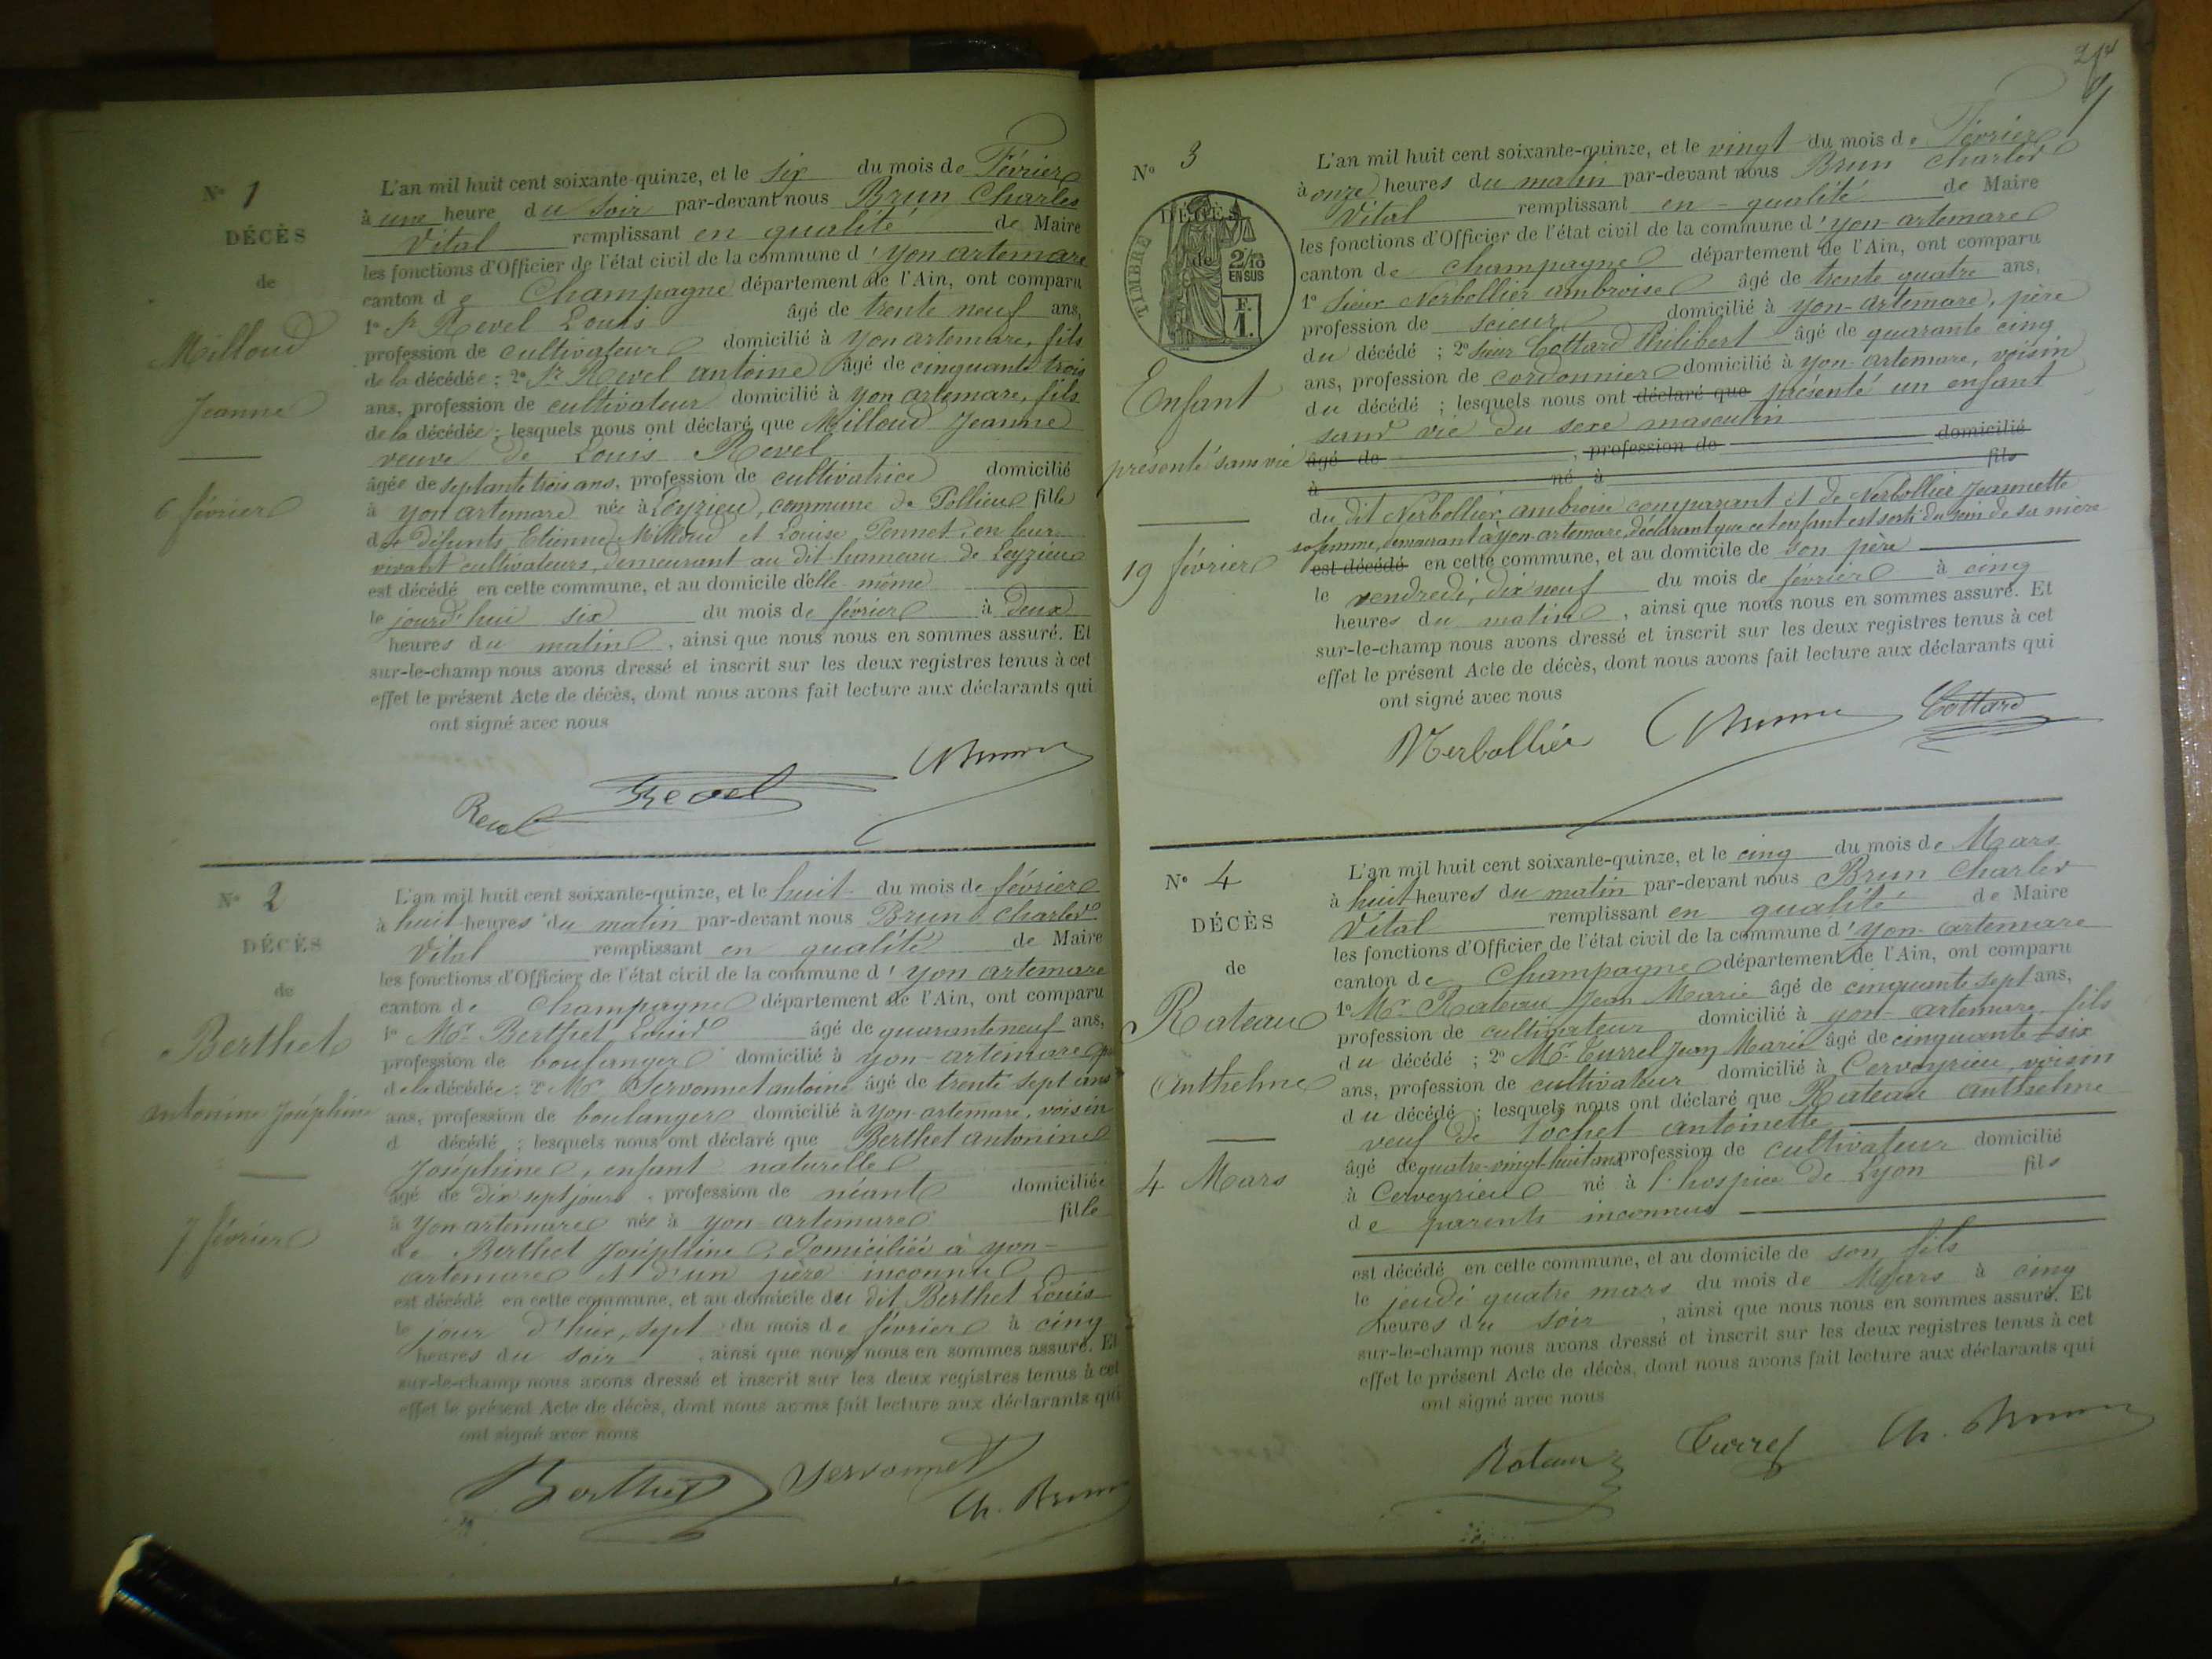 N° 1
DÉCÈS
de
Milloud
Jeanne
6 février
L'an mil huit cent soixante-quinze, et le six du mois de Février
à une heure du soir par-devant nous Brun Charles
Vital remplissant en qualité de Maire
les fonctions d'Officier de l'état civil de la commune d'yon artemare
canton de Champagne département de l'Ain, ont comparu
1° Sr Revel Louis âgé de trente neuf ans,
profession de cultivateur domicilié à yon artemare, fils
de la décédée : 2° Sr Revel antoine âgé de cinquante trois
ans, profession de cultivateur domicilié à yon artemare, fils
de la décédée ; lesquels nous ont déclaré que Milloud Jeanne
veuve de Louis Revel
âgée de septante trois ans, profession de cultivatrice domicilié
à yon artemare née à Leyzieu, commune de Pollieu fille
des défunts Etienne Milloud et Louise Pennet, en leur
vivant cultivateurs, demeurant au dit hameau de Leyzieu
est décédé en cette commune, et au domicile d'elle même
le jourd'hui six du mois de février à deux
heures du matin, ainsi que nous nous en sommes assuré. Et
sur-le-champ nous avons dressé et inscrit sur les deux registres tenus à cet
effet le présent Acte de décès, dont nous avons fait lecture aux déclarants qui
ont signé avec nous
Revel Revel Ch Brun
N° 2
DÉCÈS
de
Berthet
antonine Joséphine
7 février
L'an mil huit cent soixante-quinze, et le huit du mois de février
à huit heures du matin par-devant nous Brun Charles
Vital remplissant en qualité de Maire
les fonctions d'Officier de l'état civil de la commune d'yon artemare
canton de Champagne département de l'Ain, ont comparu
1° Mr Berthet Louis âgé de quarante neuf ans,
profession de boulanger domicilié à yon-artemare
de la décédée : 2° Mr Servonnet antoine âgé de trente sept ans
ans, profession de boulanger domicilié à yon-artemare, voisin
d décédé ; lesquels nous ont déclaré que Berthet antonine
Joséphine, enfant naturelle
âgé de dix sept jours, profession de néant domiciliée
à yon artemare née à yon-artemare fille
de Berthet Joséphine, domiciliée à yon-
artemare et d'un père inconnu
est décédé en cette commune, et au domicile du dit Berthet Louis
le jour d'hier, sept du mois de février à cinq
heures du soir, ainsi que nous nous en sommes assuré. Et
sur-le-champ nous avons dressé et inscrit sur les deux registres tenus à cet
effet le présent Acte de décès, dont nous avons fait lecture aux déclarants qui
ont signé avec nous
Berthet Servonnet Ch. Brun
N° 3
DÉCÈS
de
TIMBRE
2/10
EN SUS
F.
1.
Enfant
présenté sans vie
19 février
L'an mil huit cent soixante-quinze, et le vingt du mois de Février
à onze heures du matin par-devant nous Brun Charles
Vital remplissant en qualité de Maire
les fonctions d'Officier de l'état civil de la commune d'yon-artemare
canton de Champagne département de l'Ain, ont comparu
1° Sieur Nerbollier ambroise âgé de trente quatre ans,
profession de scieur domicilié à yon-artemare, père
du décédé ; 2° sieur Cottard Philibert âgé de quarante cinq
ans, profession de cordonnier domicilié à yon-artemare, voisin
du décédé ; lesquels nous ont déclaré que présenté un enfant
sans vie du sexe masculin
âgé de , profession de domicilié
à né à fils
du dit Nerbollier ambroise comparant et de Nerbollier Jeannette
sa femme, demeurant à yon-artemare, déclarant que cet enfant est sorti du sein de sa mère
est décédé en cette commune, et au domicile de son père
le vendredi, dix neuf du mois de février à cinq
heures du matin, ainsi que nous nous en sommes assuré. Et
sur-le-champ nous avons dressé et inscrit sur les deux registres tenus à cet
effet le présent Acte de décès, dont nous avons fait lecture aux déclarants qui
ont signé avec nous
Nerbollier Ch Brun Cottard
N° 4
DÉCÈS
de
Rateau
Anthelme
4 Mars
L'an mil huit cent soixante-quinze, et le cinq du mois de Mars
à huit heures du matin par-devant nous Brun Charles
Vital remplissant en qualité de Maire
les fonctions d'Officier de l'état civil de la commune d'yon-artemare
canton de Champagne département de l'Ain, ont comparu
1° Mr Rateau Jean Marie âgé de cinquante sept ans,
profession de cultivateur domicilié à yon-artemare, fils
du décédé ; 2° Mr Turrel Jean Marie âgé de cinquante six
ans, profession de cultivateur domicilié à Cerveyrieu, voisin
du décédé ; lesquels nous ont déclaré que Rateau Anthelme
veuf de Lochet antoinette
âgé de quatre-vingt-huit ans profession de cultivateur domicilié
à Cerveyrieu né à l'hospice de Lyon fils
de parents inconnus
est décédé en cette commune, et au domicile de son fils
le jeudi quatre mars du mois de Mars à cinq
heures du soir, ainsi que nous nous en sommes assuré. Et
sur-le-champ nous avons dressé et inscrit sur les deux registres tenus à cet
effet le présent Acte de décès, dont nous avons fait lecture aux déclarants qui
ont signé avec nous
Rateau Turrel Ch. Brun